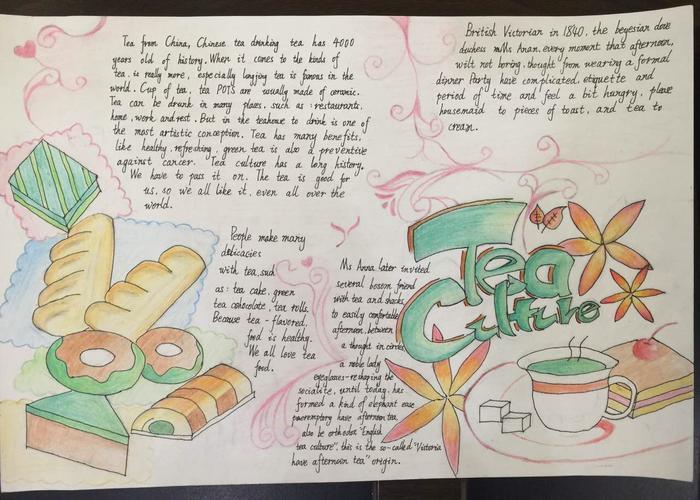 Tea from China, Chinese tea drinking tea has 4000
years old of history. When it comes to the kinds of
tea. is really more, especially longjing tea is famous in the
world. Cup of tea, tea POTS are usually made of ceramic.
Tea can be drunk in many places, such as : restaurants,
home, work and rest. But in the teahouse to drink is one of
the most artistic conception. Tea has many benefits,
like healthy, refreshing, green tea is also a preventive
against cancer. Tea culture has a long history.
We have to pass it on. The tea is good for
us, so we all like it, even all over the
world.
British Victorian in 1840, the beyesian
duchess mMs Anan, every moment that afternoon,
wilt not boring, thought from wearing a formal
dinner Party have complicated, etiquette and
period of time and feel a bit hungry, please
housemaid to pieces of toast, and tea to
cream.
People make many
delicacies
with tea, such
as : tea cake, green
tea cahocolate, tea rolls.
Because tea - flavored,
food is healthy.
We all love tea
food.
Ms Anna later invited
several bosom friend
with tea and snacks,
to easily comfortable
afternoon, between
a thought in circles
a noble lady
eyeglasses-reshaping the
socialite, until today, has
formed a kind of elephant ease
have afternoon tea
also be orthodox "English
tea culture", this is the so-called "Victoria
have afternoon tea" origin.
Tea
Culture